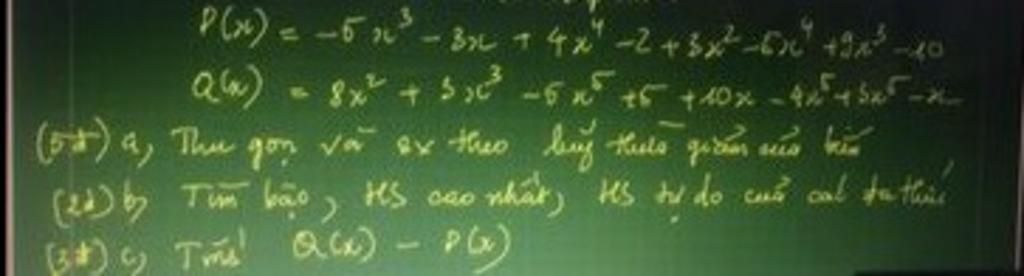 P(x) = -5x³ - 3x + 4x⁴ - 2 + 3x² - 6x⁴ + 9x³ - 10
Q(x) = 8x² + 3x³ - 5x⁵ + 5 + 10x - 4x⁵ + 3x⁵ - x
(5đ) a, Thu gọn và sx theo luỹ thừa giảm của biến
(2đ) b, Tìm bậc, HS cao nhất, HS tự do của các đa thức
(3đ) c, Tính Q(x) - P(x)